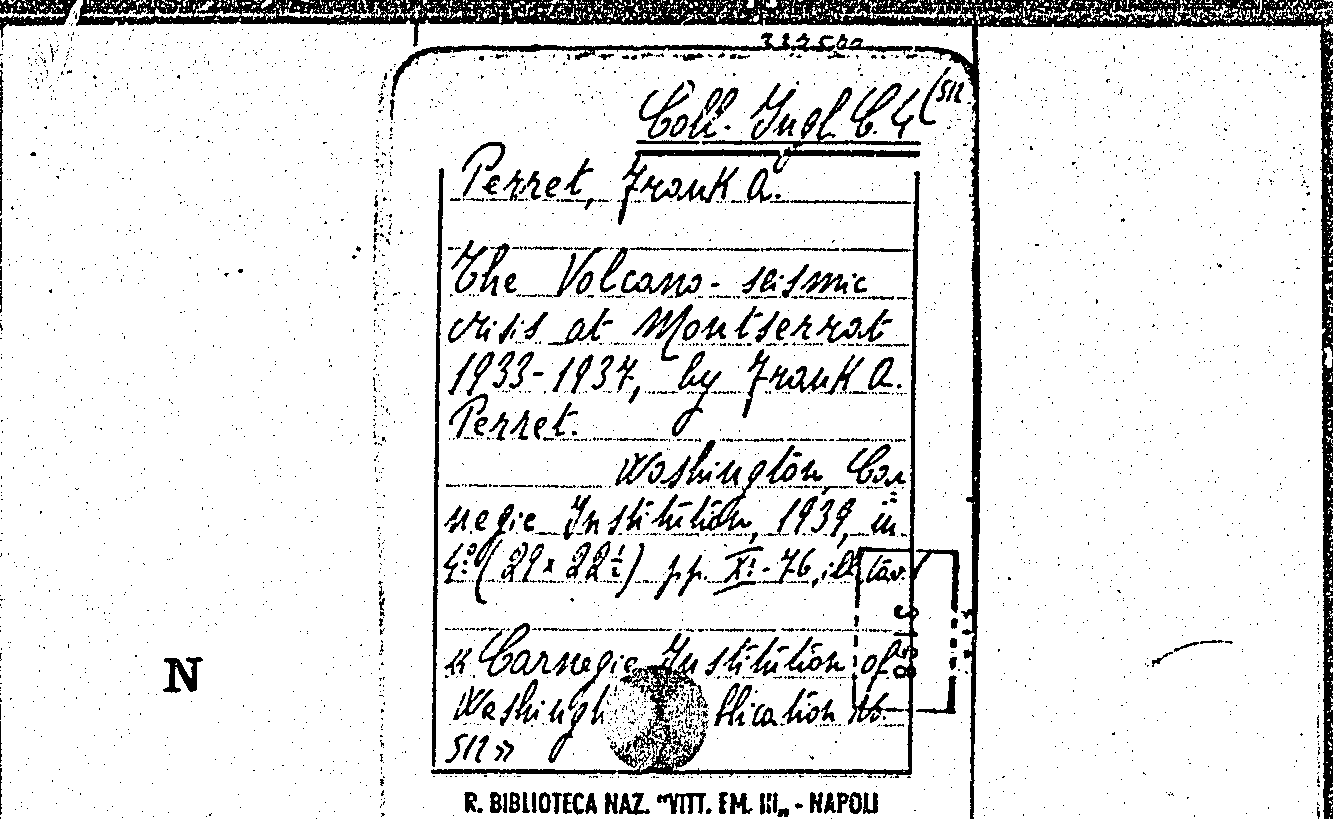 Coll. Ingl. C. 4 (512
Perret, Frank A.
The Volcano-seismic
crisis at Montserrat
1933-1937, by Frank A.
Perret.
Washington, Car
negie Institution, 1939, in
4º (29 x 22½) pp. XI-76, ill. tav.
« Carnegie Institution of
Washingt blication No.
512 »
N
R. BIBLIOTECA NAZ. "VITT. EM. III„ - NAPOLI